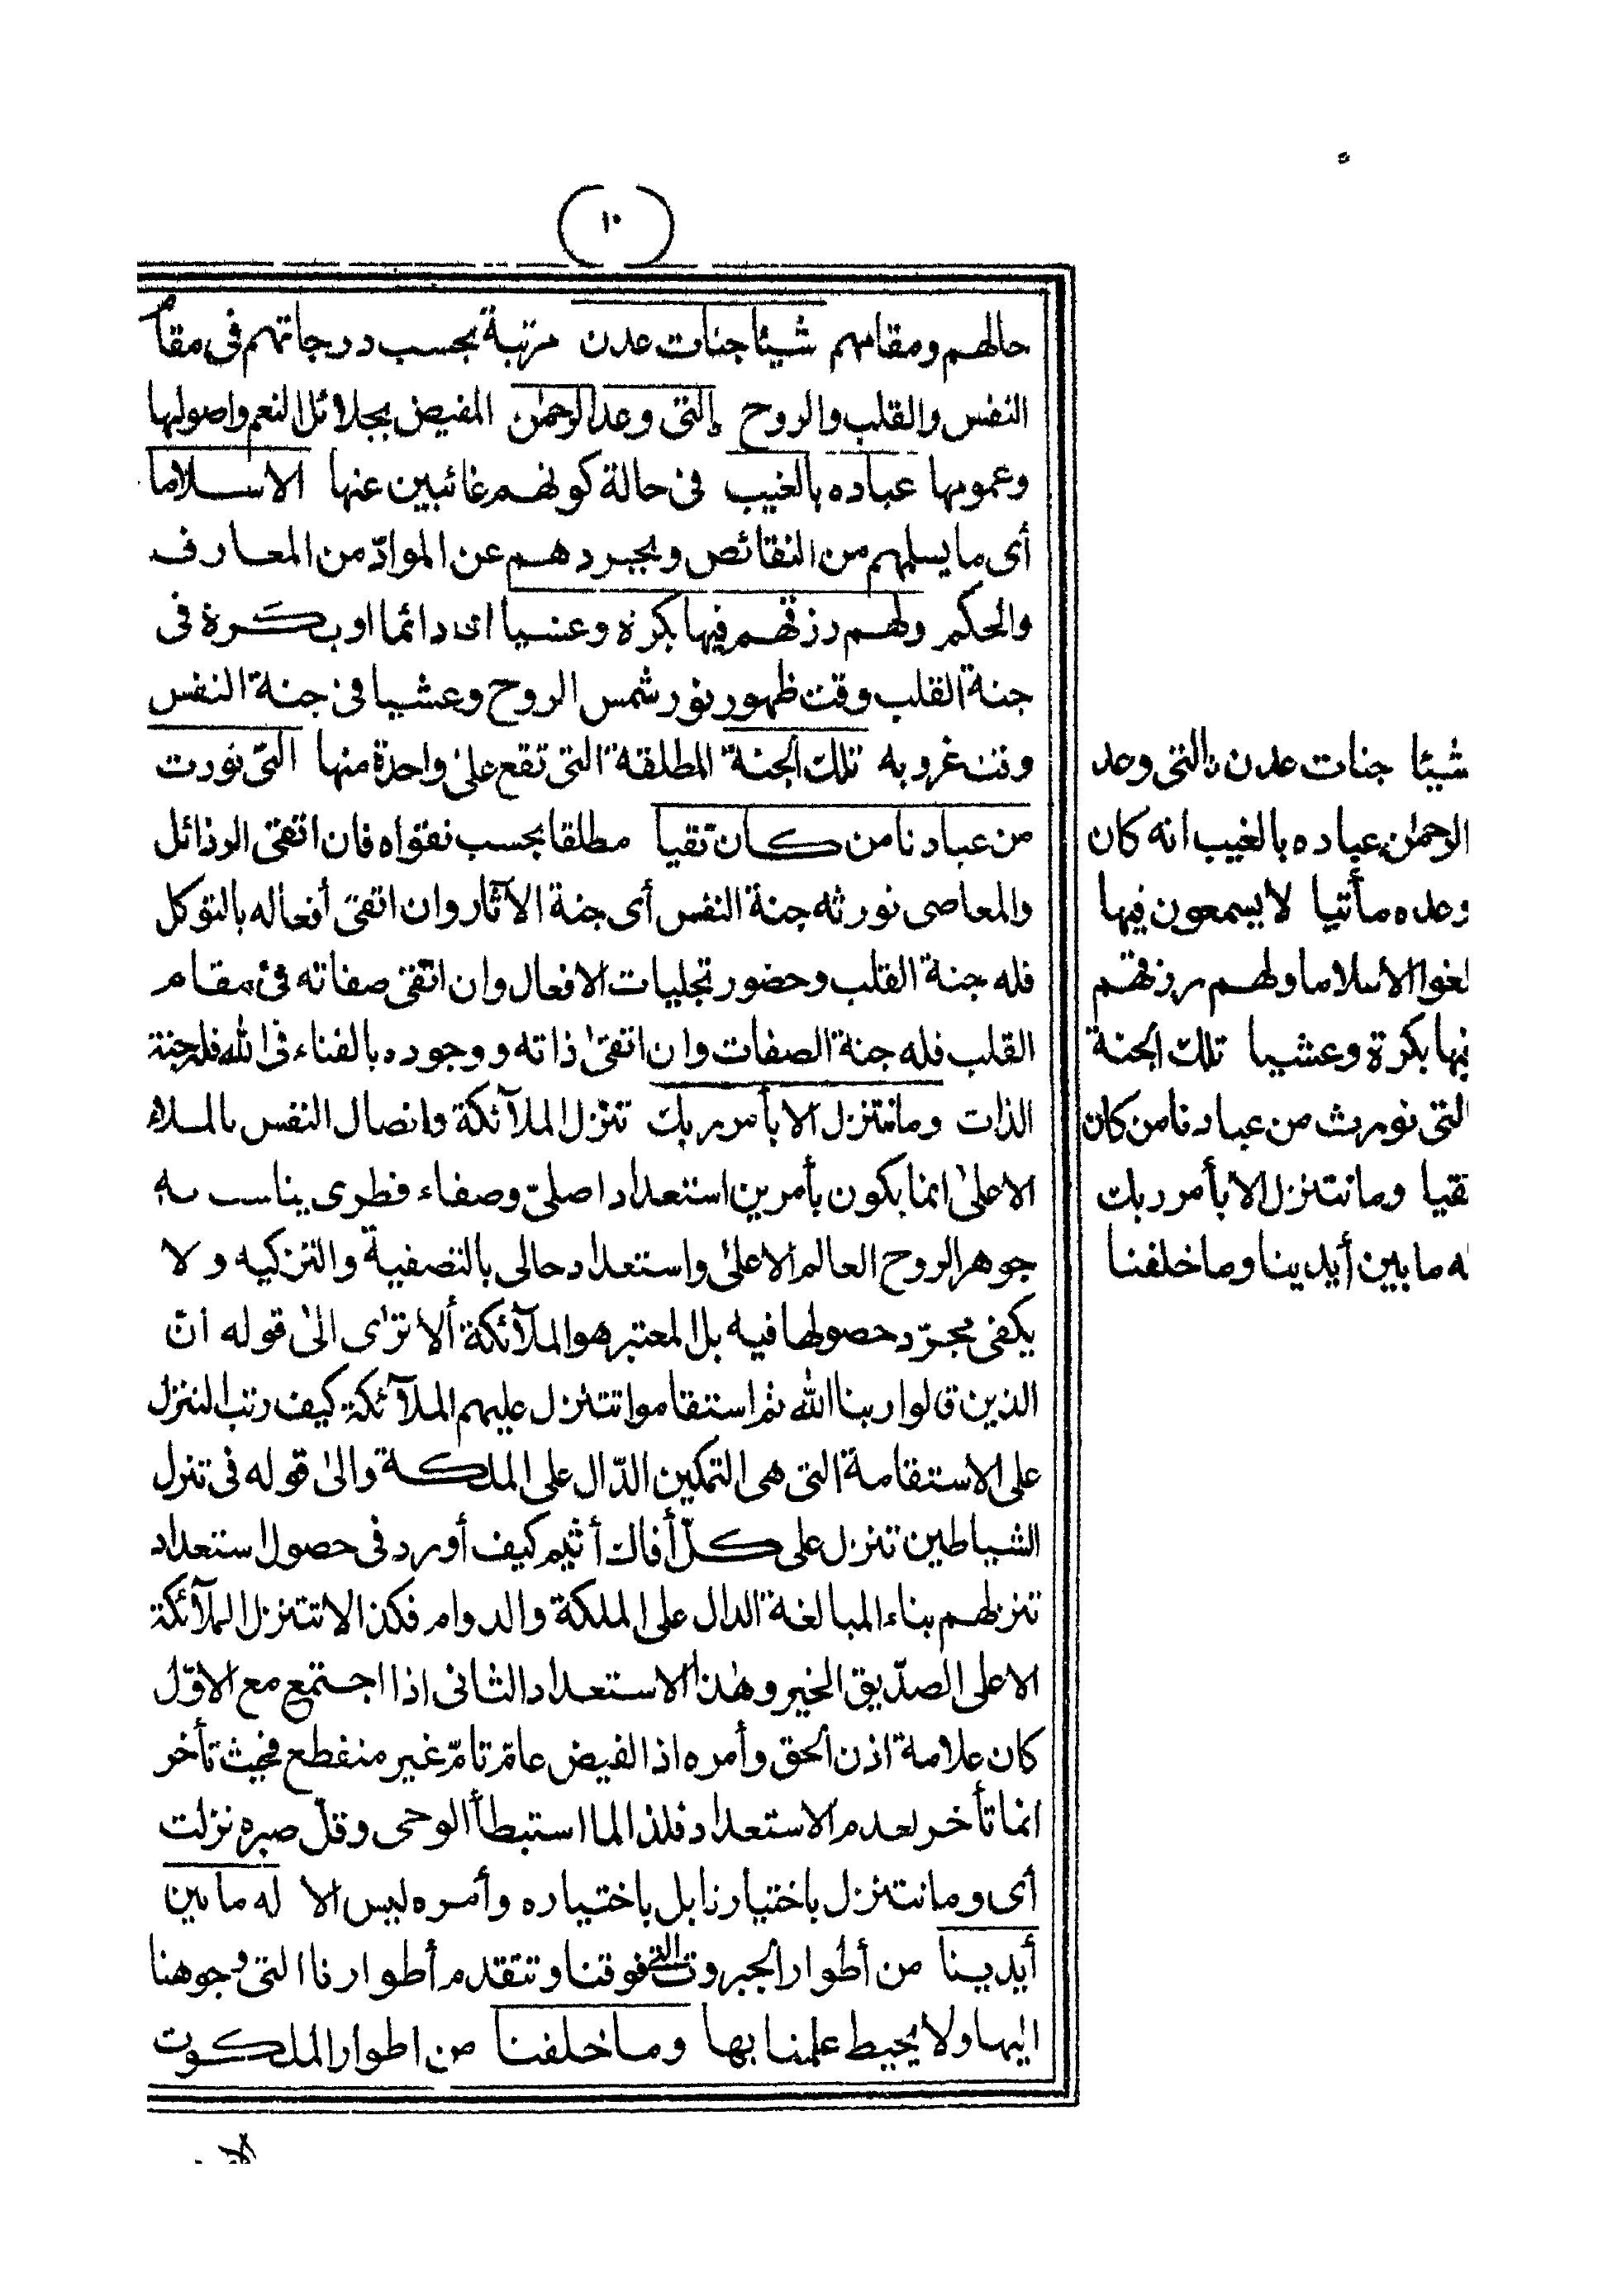 (١٠)
حالهم ومقامهم شيئا جنات عدن مرتبة بحسب درجاتهم فى مقام
النفس والقلب والروح التى وعد الرحمٰن المفيض بجلائل النعم واصولها
وعمومها عباده بالغيب فى حالة كونهم غائبين عنها الا سلاما
أى ما يسلمهم من النقائص ويجردهم عن الموادّ من المعارف
والحكم ولهم رزقهم فيها بكرة وعشيا اى دائما او بكرة فى
جنة القلب وقت ظهور نور شمس الروح وعشيا فى جنة النفس
وقت غروبه تلك الجنة المطلقة التى تقع على واحدة منها التى نورث
من عبادنا من كان تقيا مطلقا بحسب تقواه فان اتقى الرذائل
والمعاصى نورثه جنة النفس أى جنة الآثار وان اتقى أفعاله بالتوكل
فله جنة القلب وحضور تجليات الافعال وان اتقى صفاته فى مقام
القلب فله جنة الصفات وان اتقى ذاته ووجوده بالفناء فى الله فله جنة
الذات وما نتنزل الا بأمر ربك تنزل الملآئكة واتصال النفس بالملاء
الاعلى انما يكون بأمرين استعداد اصلىّ وصفاء فطرى يناسب به
جوهر الروح العالم الاعلى واستعداد حالى بالتصفية والتزكيه ولا
يكفى مجرّد حصولها فيه بل المعتبر هو الملآئكة ألا ترٰى الى قوله انّ
الذين قالوا ربنا الله ثم استقاموا تتنزل عليهم الملآئكة كيف رتب التنزل
على الاستقامة التى هى التمكين الدّال على الملكة والى قوله فى تنزل
الشياطين تنزل على كلّ أفاك أثيم كيف أورد فى حصول استعداد
تنزلهم بناء المبالغة الدال على الملكة والدوام فكذا لا تتنزل الملآئكة
الا على الصدّيق الخير وهٰذا الاستعداد الثانى اذا اجتمع مع الاوّل
كان علامة اذن الحق وأمره اذ الفيض عامّ تامّ غير منقطع فحيث تأخر
انما تأخر لعدم الاستعداد فلذا لما استبطأ الوحى وقلّ صبره نزلت
أى وما نتنزل باختيارنا بل باختياره وأمره ليس الا له ما بين
أيدينا من أطوار الجبروت التى فوقنا وتتقدم أطوارنا التى وجوهنا
اليها ولا يحيط علمنا بها وما خلفنا من اطوار الملكوت
شيئا جنات عدن التى وعد
الرحمٰن عباده بالغيب انه كان
وعده مأتيا لا يسمعون فيها
لغوا الا سلاما ولهم رزقهم
فيها بكرة وعشيا تلك الجنة
التى نورث من عبادنا من كان
تقيا وما نتنزل الا بأمر ربك
له ما بين أيدينا وما خلفنا